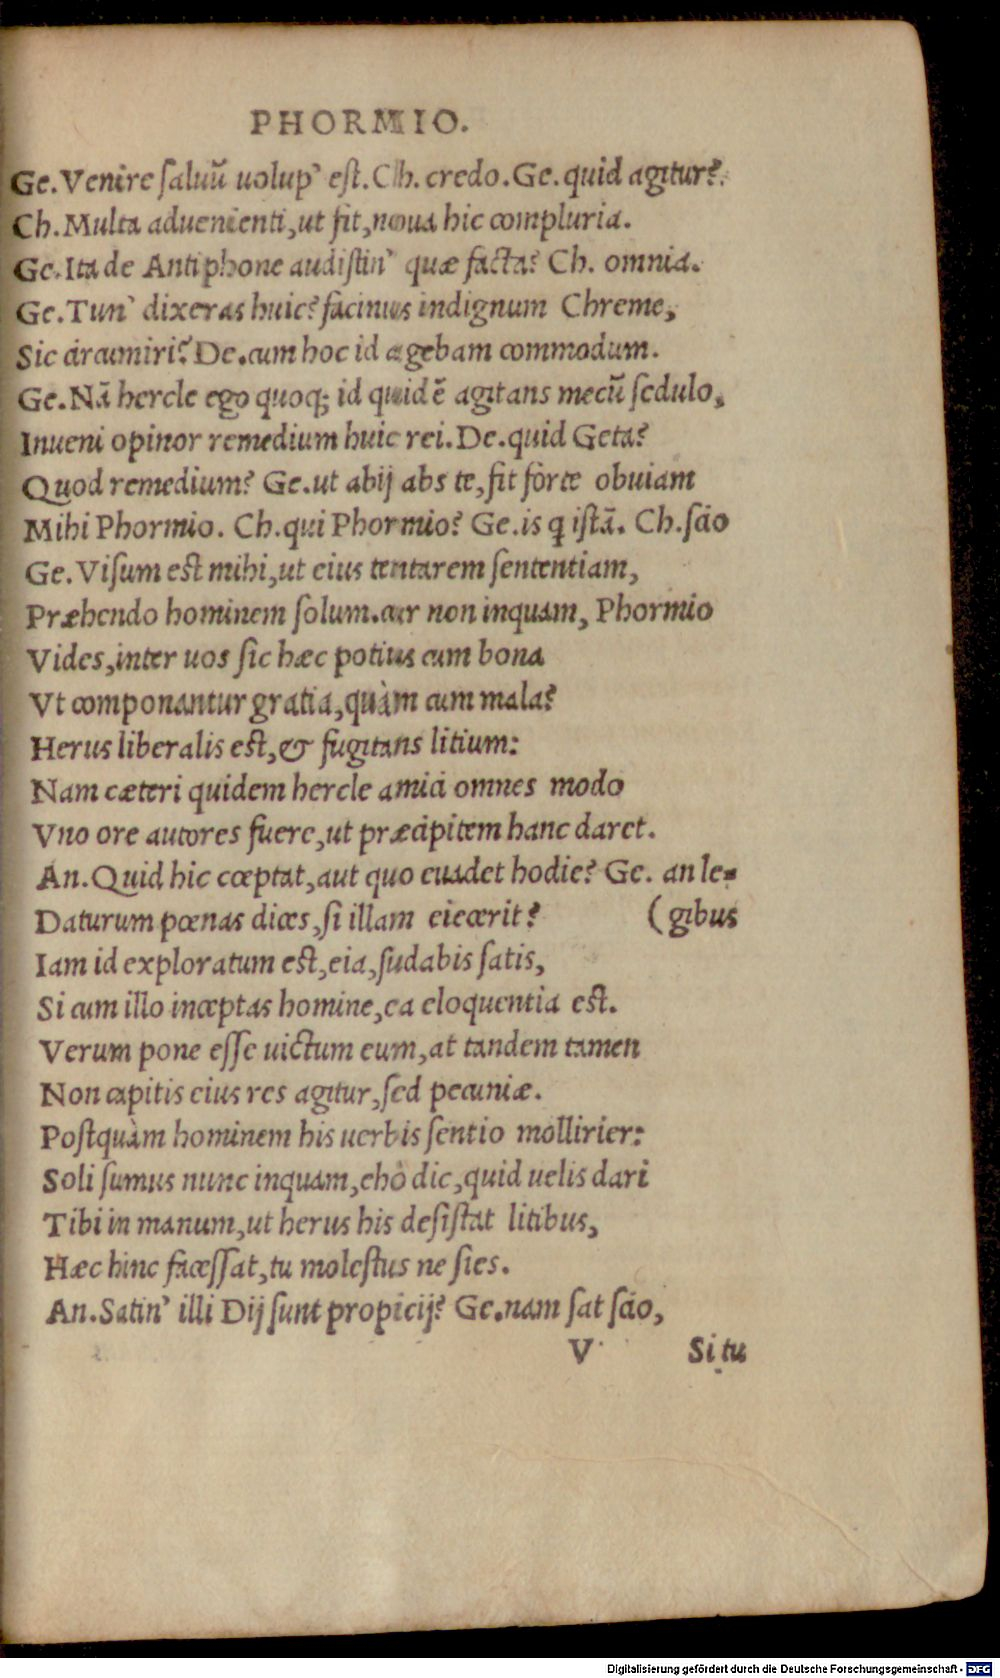 PHORMIO.
Ge. Venire saluū uolup' est. Ch. credo. Ge. quid agitur?
Ch. Multa aduenienti, ut fit, noua hic compluria.
Ge. Ita de Antiphone audistin' quæ facta? Ch. omnia.
Ge. Tun' dixeras huic? facinus indignum Chreme,
Sic circumiri? De. cum hoc id agebam commodum.
Ge. Nā hercle ego quoq; id quidē agitans mecū sedulo,
Inueni opinor remedium huic rei. De. quid Geta?
Quod remedium? Ge. ut abij abs te, fit forte obuiam
Mihi Phormio. Ch. qui Phormio? Ge. is q istā. Ch. scio
Ge. Visum est mihi, ut eius tentarem sententiam,
Præhendo hominem solum. cur non inquam, Phormio
Vides, inter uos sic hæc potius cum bona
Vt componantur gratia, quàm cum mala?
Herus liberalis est, & fugitans litium:
Nam cæteri quidem hercle amici omnes modo
Vno ore autores fuere, ut præcipitem hanc daret.
An. Quid hic cœptat, aut quo euadet hodie? Ge. an le-
Daturum pœnas dices, si illam eiecerit? (gibus
Iam id exploratum est, eia, sudabis satis,
Si cum illo incœptas homine, ea eloquentia est.
Verum pone esse uictum eum, at tandem tamen
Non capitis eius res agitur, sed pecuniæ.
Postquàm hominem his uerbis sentio mollirier:
Soli sumus nunc inquam, eho dic, quid uelis dari
Tibi in manum, ut herus his desistat litibus,
Hæc hinc facessat, tu molestus ne sies.
An. Satin' illi Dij sunt propicij? Ge. nam sat scio,
V Si tu
Digitalisierung gefördert durch die Deutsche Forschungsgemeinschaft - DFG